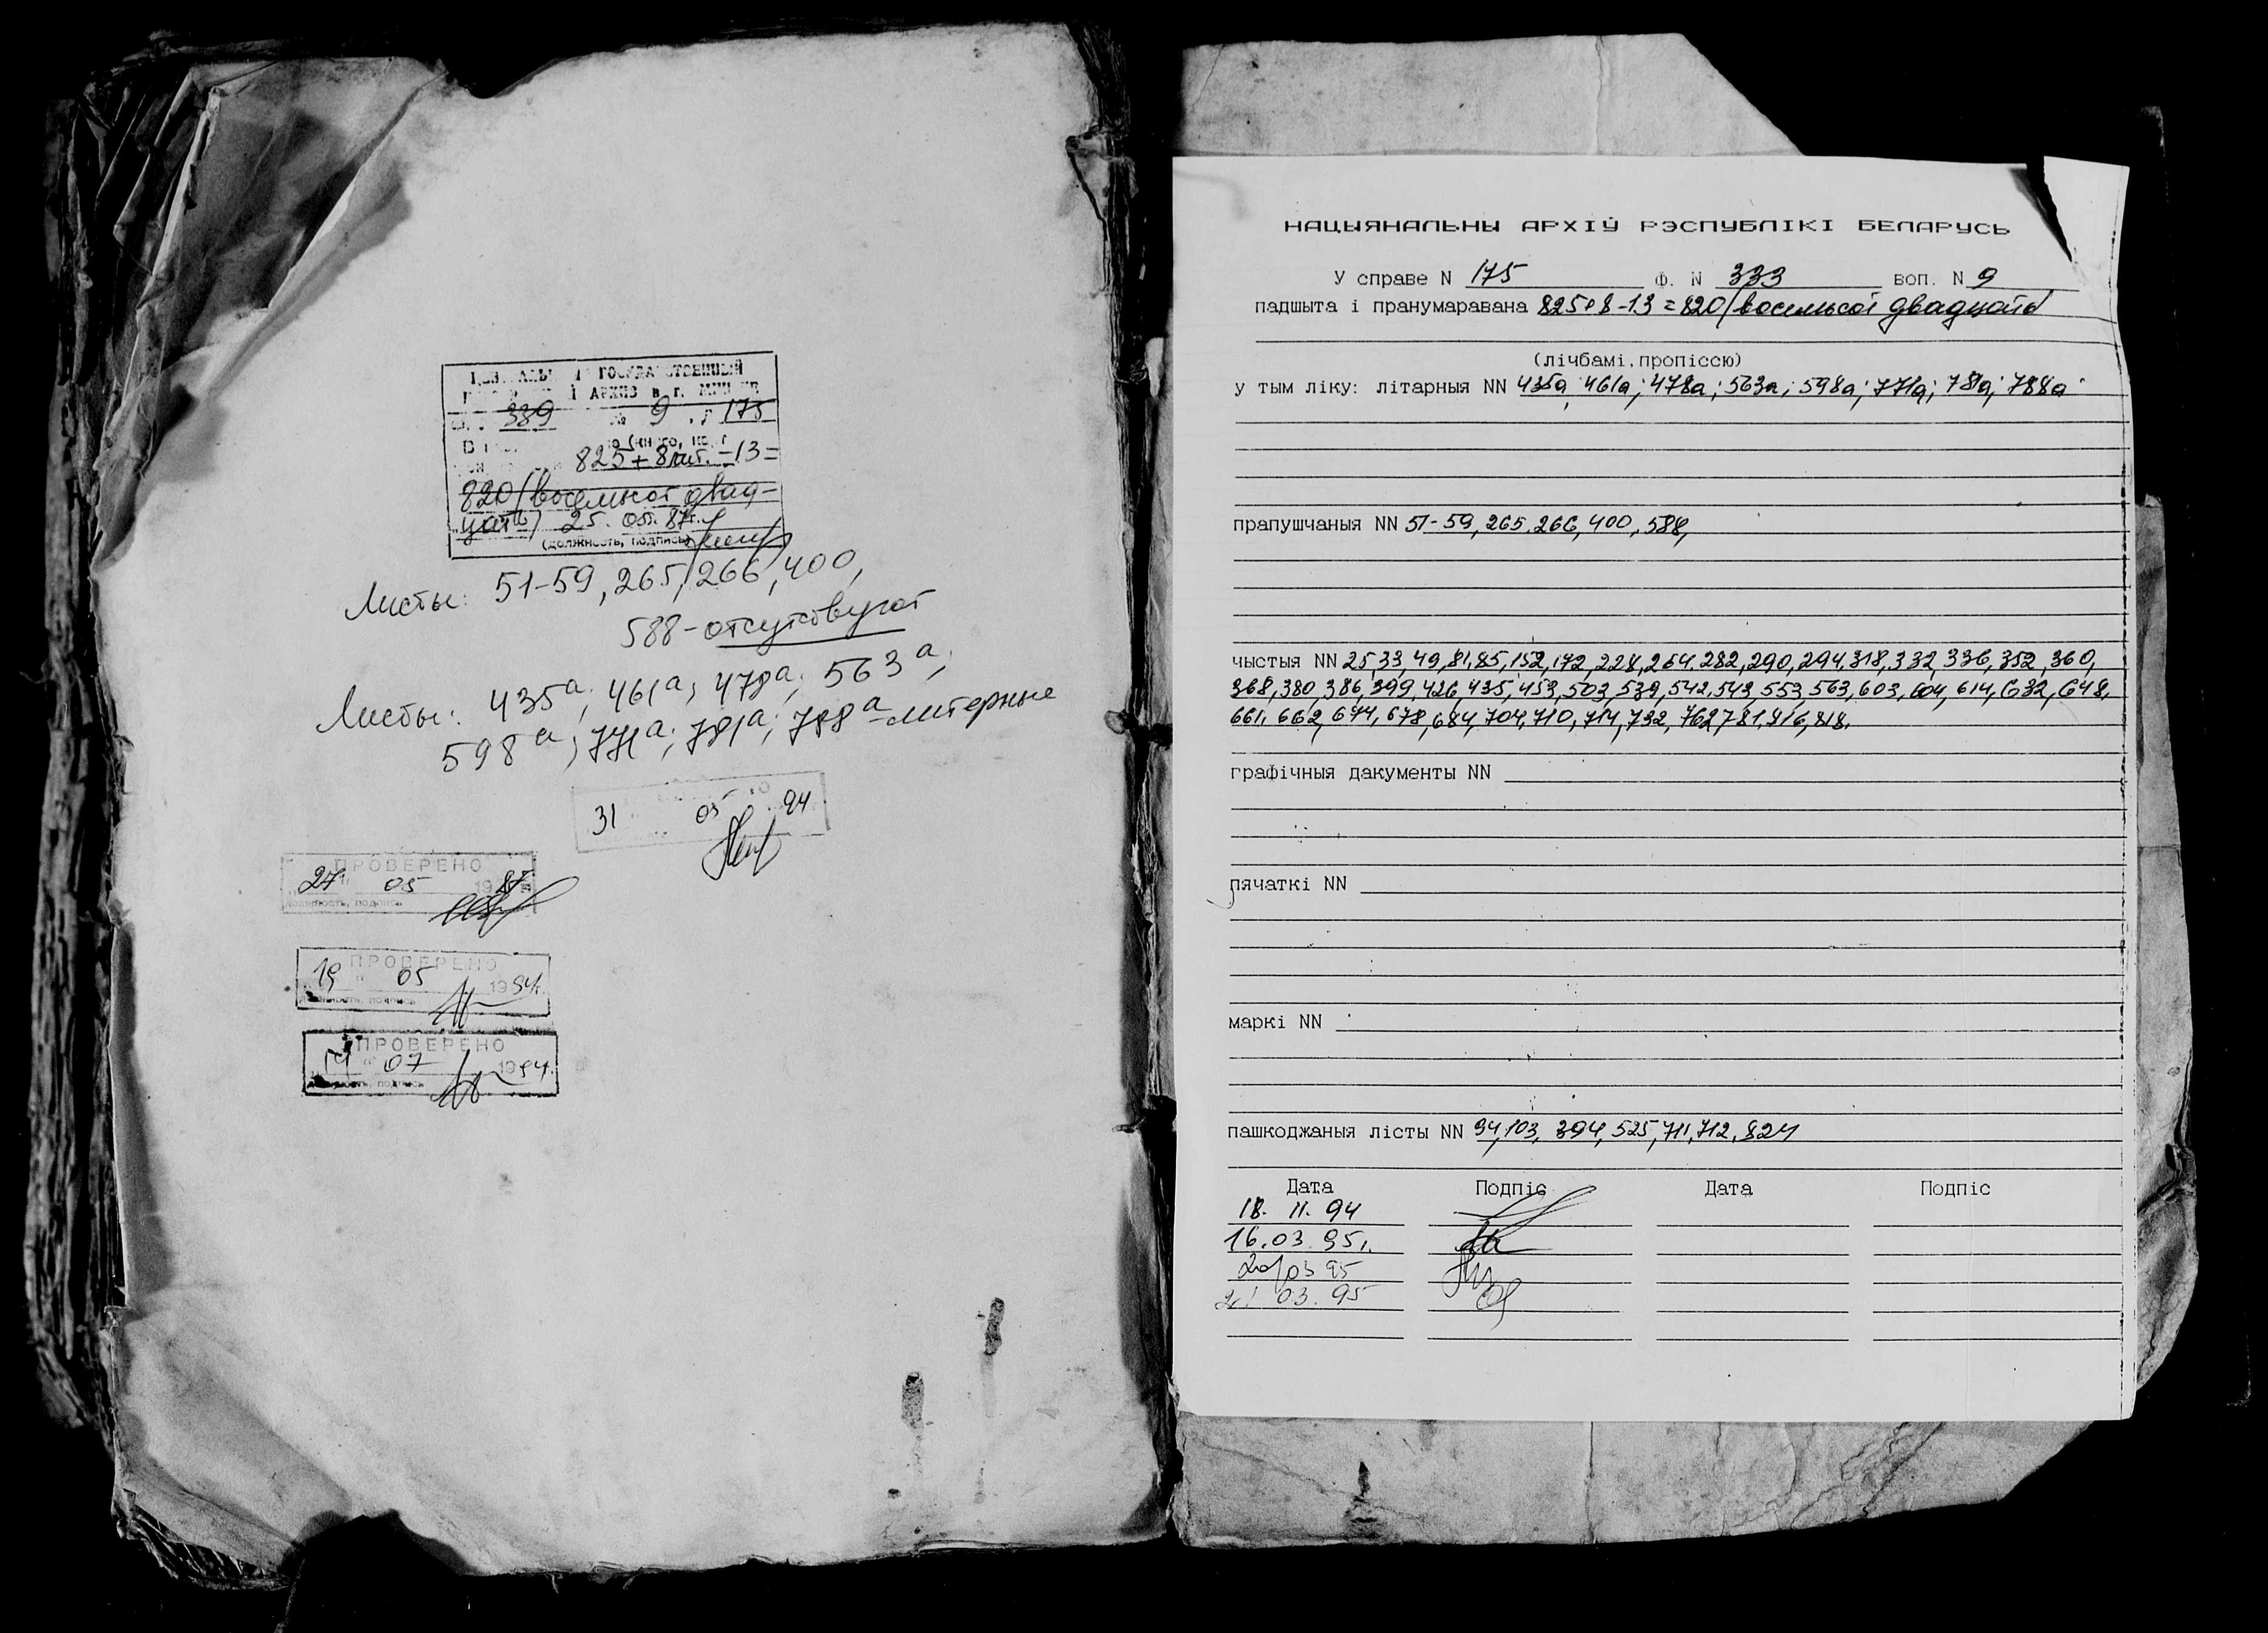 ГОСУДАРСТВЕННЫЙ
АРХИВ в г.
339 № 9 175
В
825 + 8 лит. - 13 =
820 (восемьсот двад-
цать) 25. 05. 87г.
(должность, подпись)
Листы: 51-59, 265, 266, 400,
588 - отсутствуют
Листы: 435а; 461а; 478а; 563а;
598а; 771а; 781а; 788а - литерные
31 05 94
ПРОВЕРЕНО
27 05 1987
должность, подпись
ПРОВЕРЕНО
19 05 1994г.
должность, подпись
ПРОВЕРЕНО
14 07 1994.
должность, подпись
НАЦЫЯНАЛЬНЫ АРХІЎ РЭСПУБЛІКІ БЕЛАРУСЬ
У справе N 175 Ф. N 333 воп. N 9
падшыта і пранумаравана 825+8-13=820 (восемьсот двадцать)
(лічбамі, пропіссю)
у тым ліку: літарныя NN 435а; 461а; 478а; 563а; 598а; 771а; 781а; 788а
прапушчаныя NN 51-59, 265, 266, 400, 588,
чыстыя NN 25, 33, 49, 81, 85, 152, 172, 228, 264, 282, 290, 294, 318, 332, 336, 352, 360,
368, 380, 386, 399, 426, 435, 453, 503, 539, 542, 543, 553, 563, 603, 604, 614, 632, 648,
661, 662, 674, 678, 684, 704, 710, 714, 732, 762, 781, 816, 818.
графічныя дакументы NN
пячаткі NN
маркі NN
пашкоджаныя лісты NN 94, 103, 394, 525, 711, 712, 824
Дата Подпіс Дата Подпіс
18. 11. 94
16. 03. 95г.
20/03 95
21 03. 95